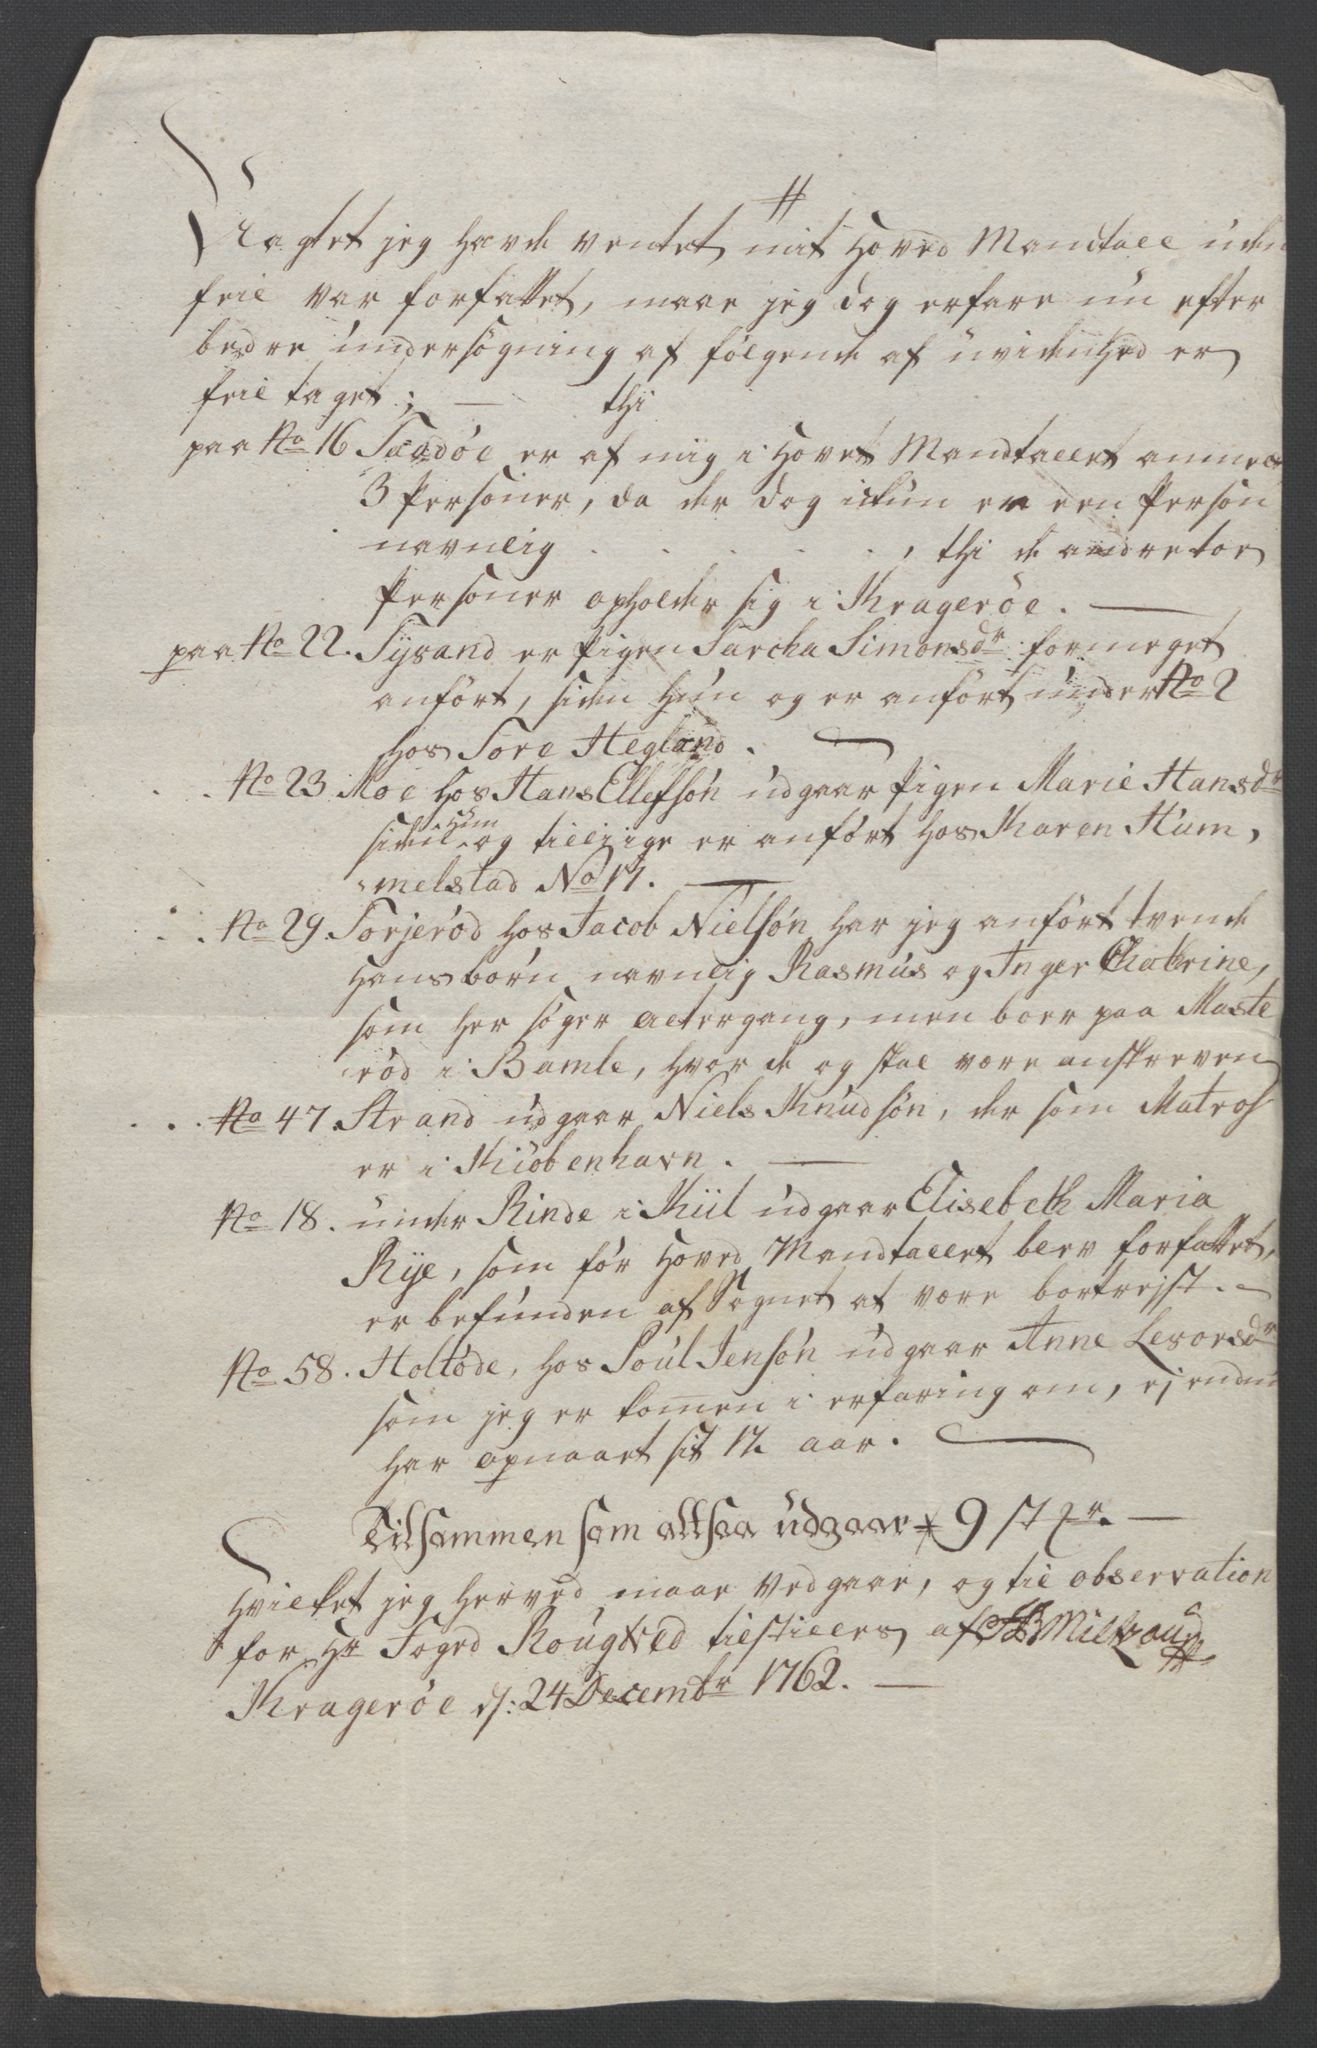 Uagtet jeg havde ventet mit Hoved Mandtall uden
feil var forfattet, maae jeg dog erfare nu efter
bedre undersögning af fölgende af uvidenhed er
feil taget; — thi
paa No 16 Taadöe er af mig i Hovet Mandtallet anmelt
3 Personer, da der dog ickun er een Person
navnlig . . . . . , thi de andre toe
Personer opholder sig i Kragerøe. —
paa No 22. Tysand er Pigen Sarcha Simonsdr formeget
anfört, siden hun og er anfört under No 2
hos Tore Hegland. —
. . No 23 Moe hos Hans Ellefsön udgaar Pigen Marie Hansdr
siden hun og tillige er anfört hos Karen Hum,
melstad No 17. —
. . No 29 Torjeröd hos Jacob Nielsön har jeg anfört tvende
hans börn navnlig Rasmus og Inger Chatrine,
som her söger altergang, men boer paa Maste
röd i Bamle, hvor de og skal være anskreven
. . . No 47 Strand udgaar Niels Knudsön, der som Matros
er i Kiöbenhavn. —
No 18. under Rinde i Kiil udgaar Elisebeth Maria
Rye, som för Hoved Mandtallet blev forfattet,
er befunden af Sognet at være bortrejst. —
No 58. Holtöde, hos Poul Jensön udgaar Anne Levorsdr
som jeg er komen i erfaring om, ej endnu
har opnaaet sit 12. aar. —
Tilsammen som altsaa udgaar 9 st pr. —
Hvilket jeg herved maae vedgaae, og til observation
for Hr Foged Rougtved tilstilles af JB Miltzou
Kragerøe d: 24 Decembr 1762. —